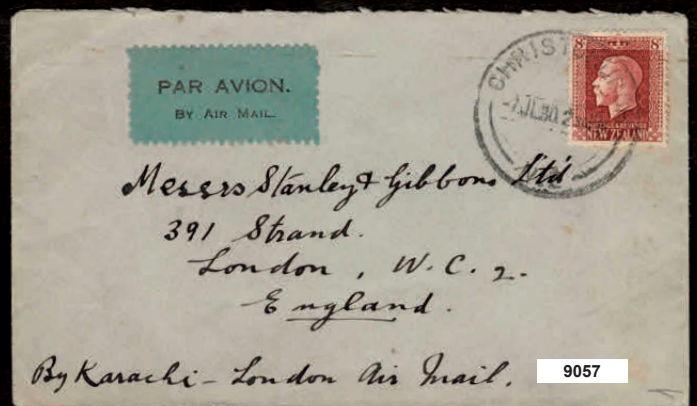 PAR AVION.
BY AIR MAIL.
8d 8d
POSTAGE & REVENUE
NEW ZEALAND
CHRISTC
Messrs Stanley & Gibbons Ltd
391 Strand.
London, W.C.2.
England.
By Karachi - London Air Mail.
9057